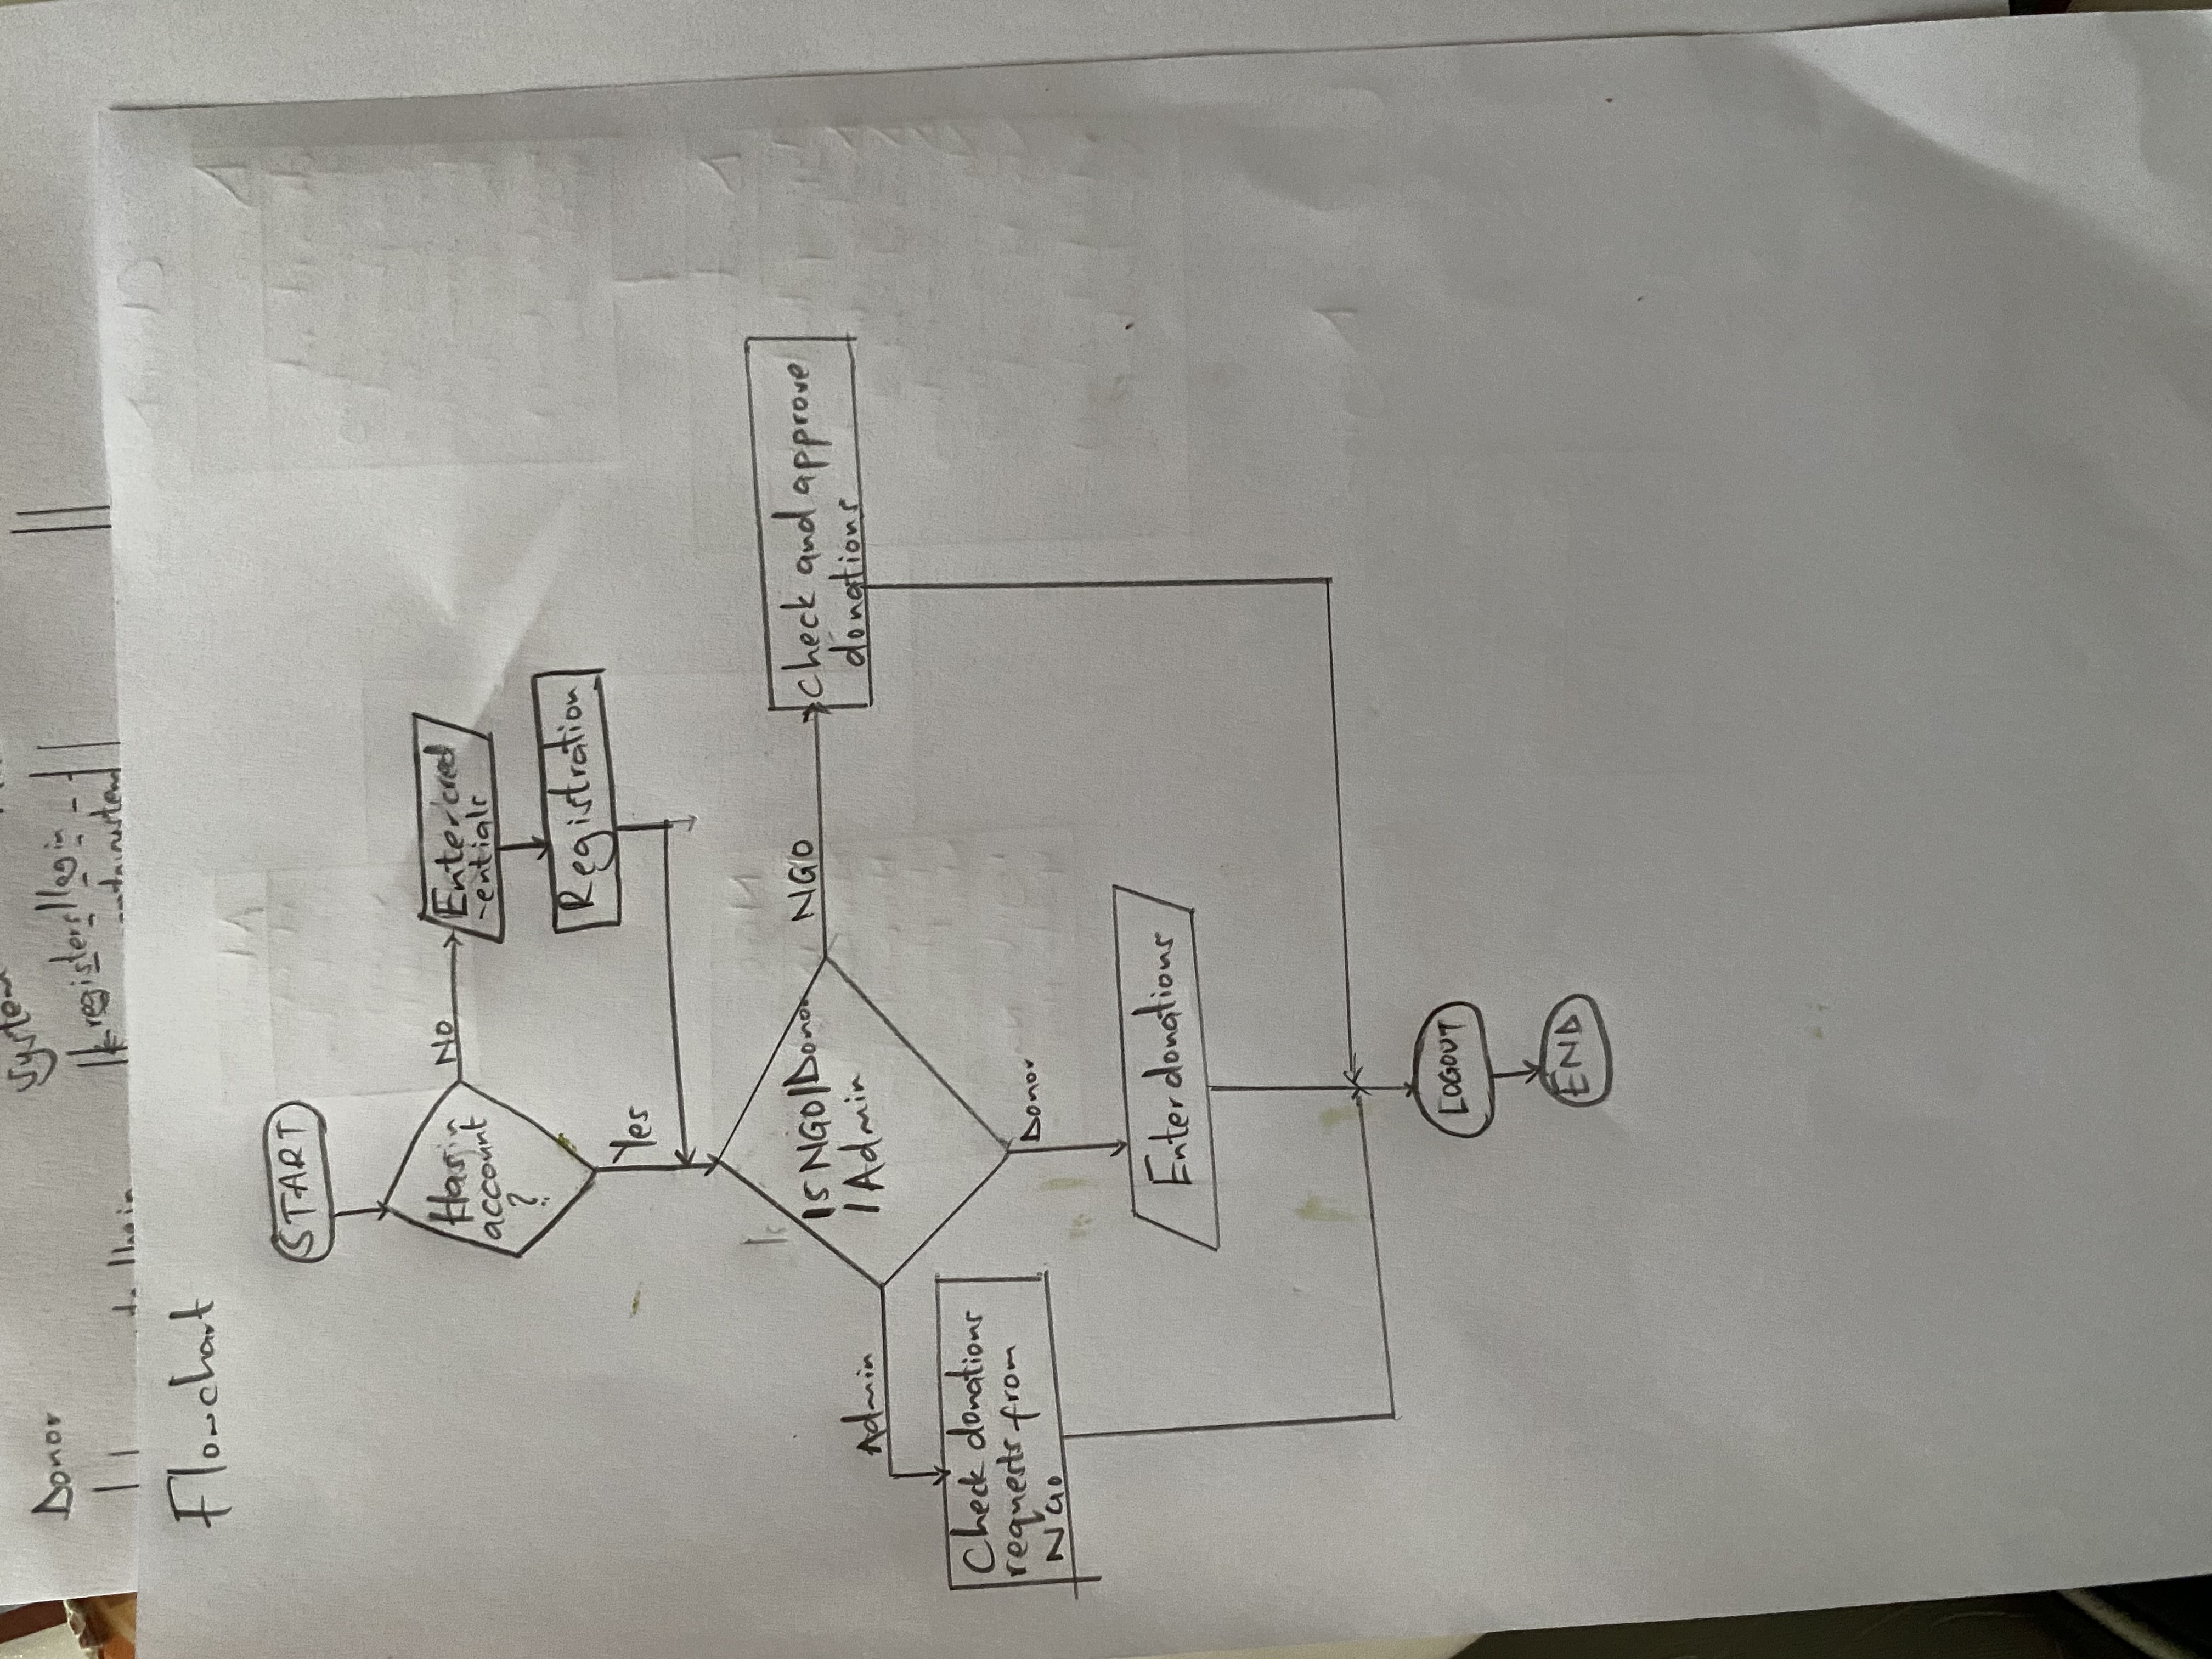 Donor
System
registers/login
Flowchart
START
Has an
account
?
No
Enter cred
-entials
Yes
Registration
Is NGO/Donor
/Admin
Admin
NGO
Donor
Check donations
requests from
NGO
Check and approve
donations
Enter donations
LOGOUT
END